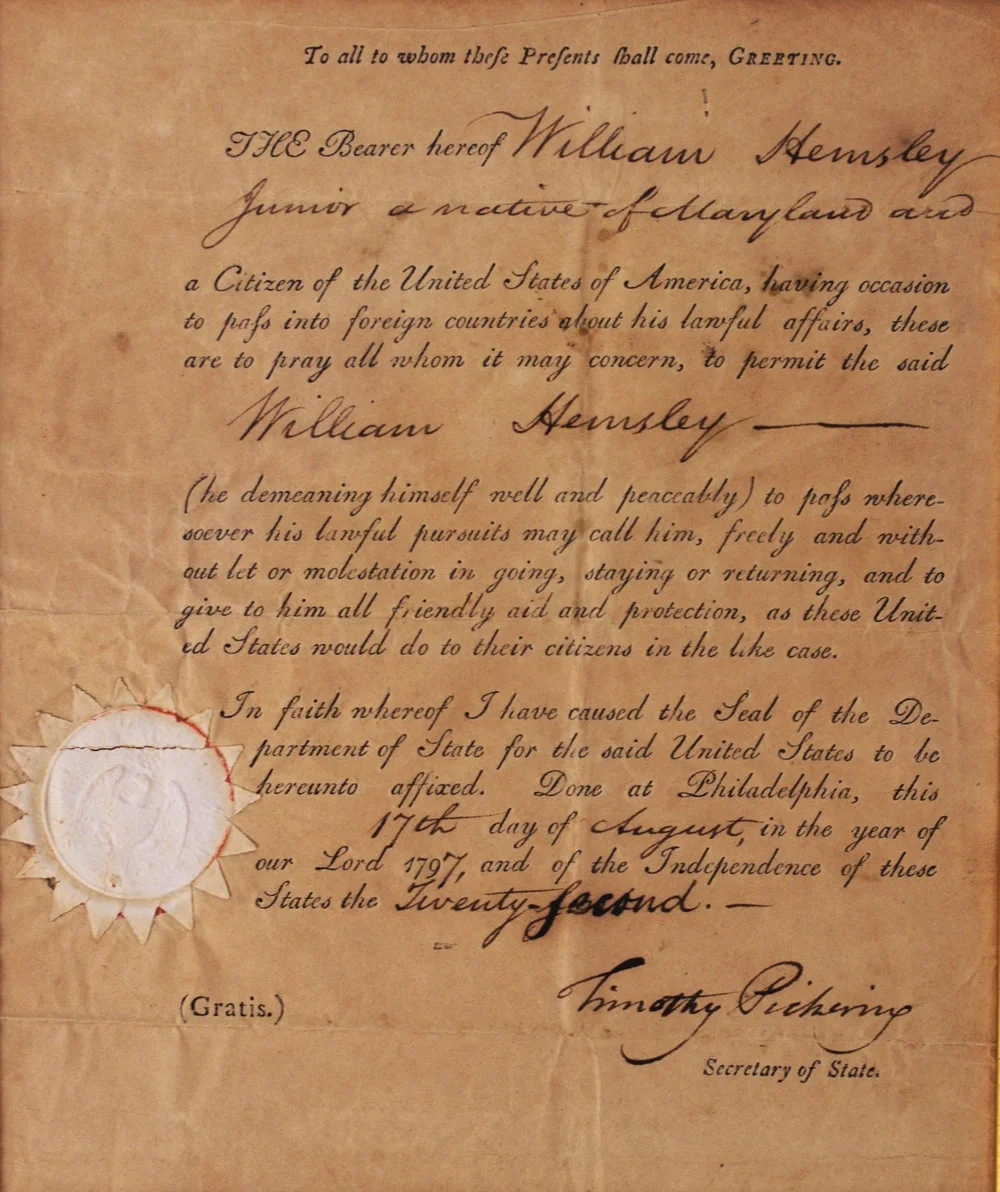 To all to whom theſe Preſents ſhall come, GREETING.
THE Bearer hereof William Hemsley
Junior a native of Maryland and
a Citizen of the United States of America, having occasion
to paſs into foreign countries about his lawful affairs, these
are to pray all whom it may concern, to permit the said
William Hemsley
(he demeaning himself well and peaceably) to paſs where-
soever his lawful pursuits may call him, freely and with-
out let or molestation in going, staying or returning, and to
give to him all friendly aid and protection, as these Unit-
ed States would do to their citizens in the like case.
In faith whereof I have caused the Seal of the De-
partment of State for the said United States to be
hereunto affixed. Done at Philadelphia, this
17th day of August, in the year of
our Lord 1797, and of the Independence of these
States the Twenty-second.
(Gratis.)
Timothy Pickering
Secretary of State.